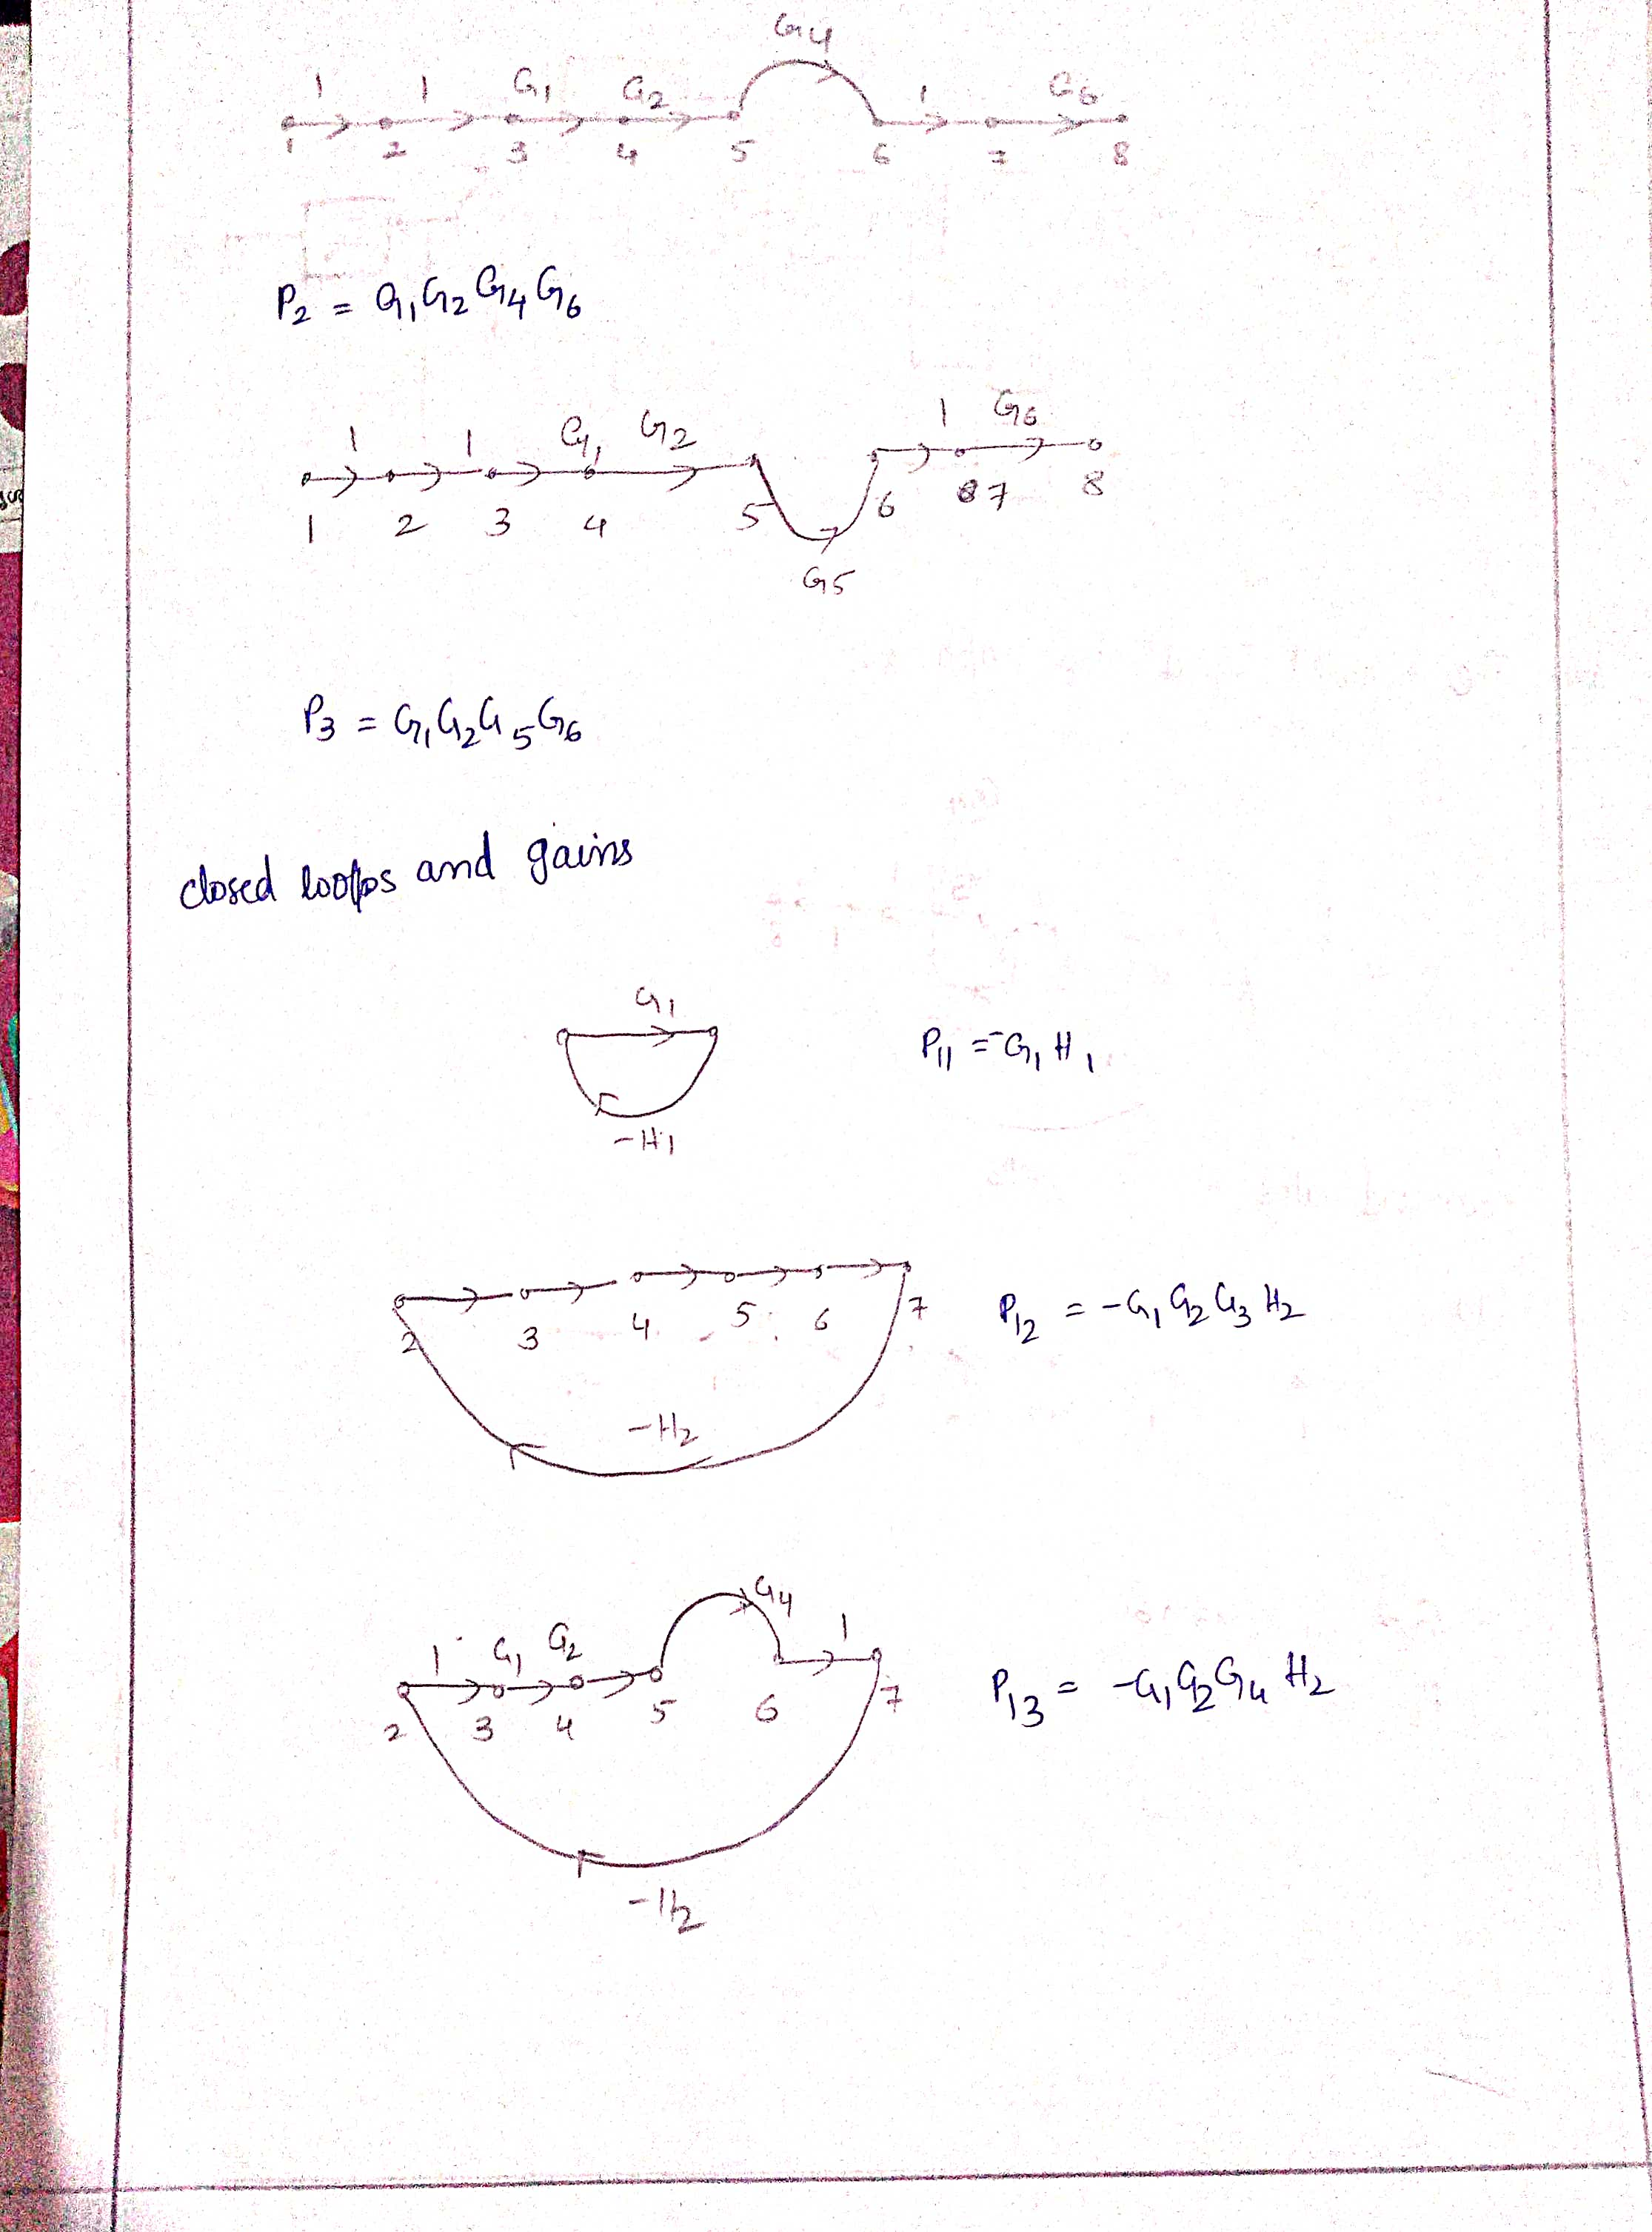 G4
1 1 G1 G2 1 G6
1 2 3 4 5 6 7 8
P2 = G1 G2 G4 G6
1 1 G1 G2 1 G6
1 2 3 4 5 6 7 8
G5
P3 = G1 G2 G5 G6
closed loops and gains
G1
P11 = -G1 H1
-H1
2 3 4 5 6 7
P12 = -G1 G2 G3 H2
-H2
1 G1 G2 G4 1
2 3 4 5 6 7
P13 = -G1 G2 G4 H2
-H2